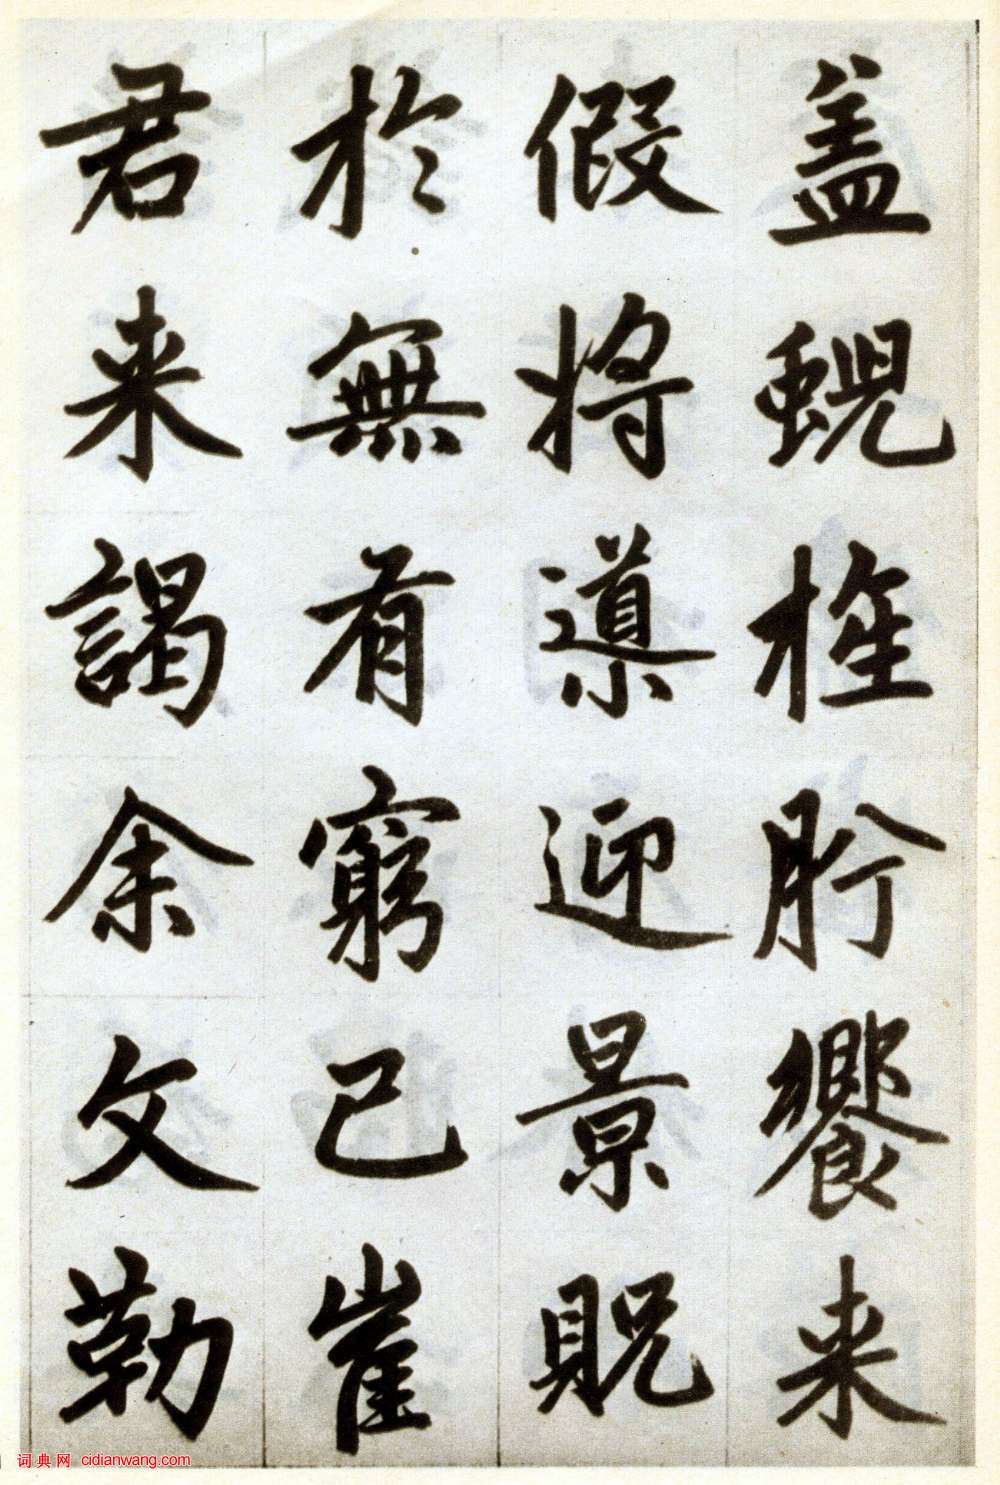 盖蜺旌肹饗来
假将導迎景贶
於無有窮已崔
君来謁余文勒
词典网 cidianwang.com